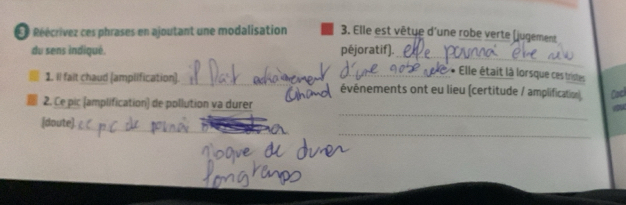 3 Réécrivez ces phrases en ajoutant une modalisation
du sens indiqué.
1. Il fait chaud (amplification). il fait
chaud
2. Ce pic (amplification) de pollution va durer
(doute). ce pic de
risque de durer
longtemps
3. Elle est vêtue d'une robe verte (jugement
péjoratif). elle pourrai être
d'une robe • Elle était là lorsque ces tristes
événements ont eu lieu (certitude / amplification).